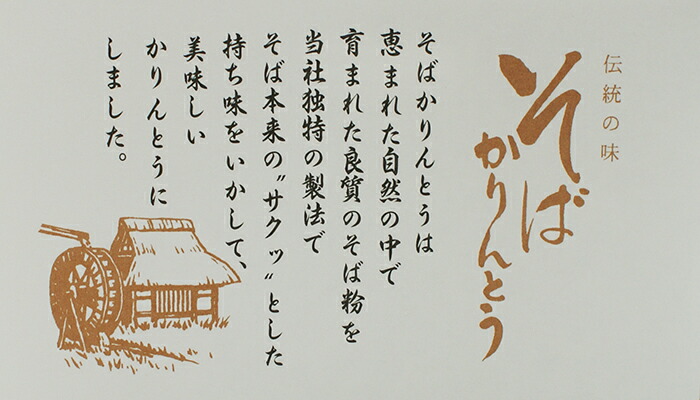 伝統の味
そば
かりんとう
そばかりんとうは
恵まれた自然の中で
育まれた良質のそば粉を
当社独特の製法で
そば本来の〝サクッ〟とした
持ち味をいかして、
美味しい
かりんとうに
しました。